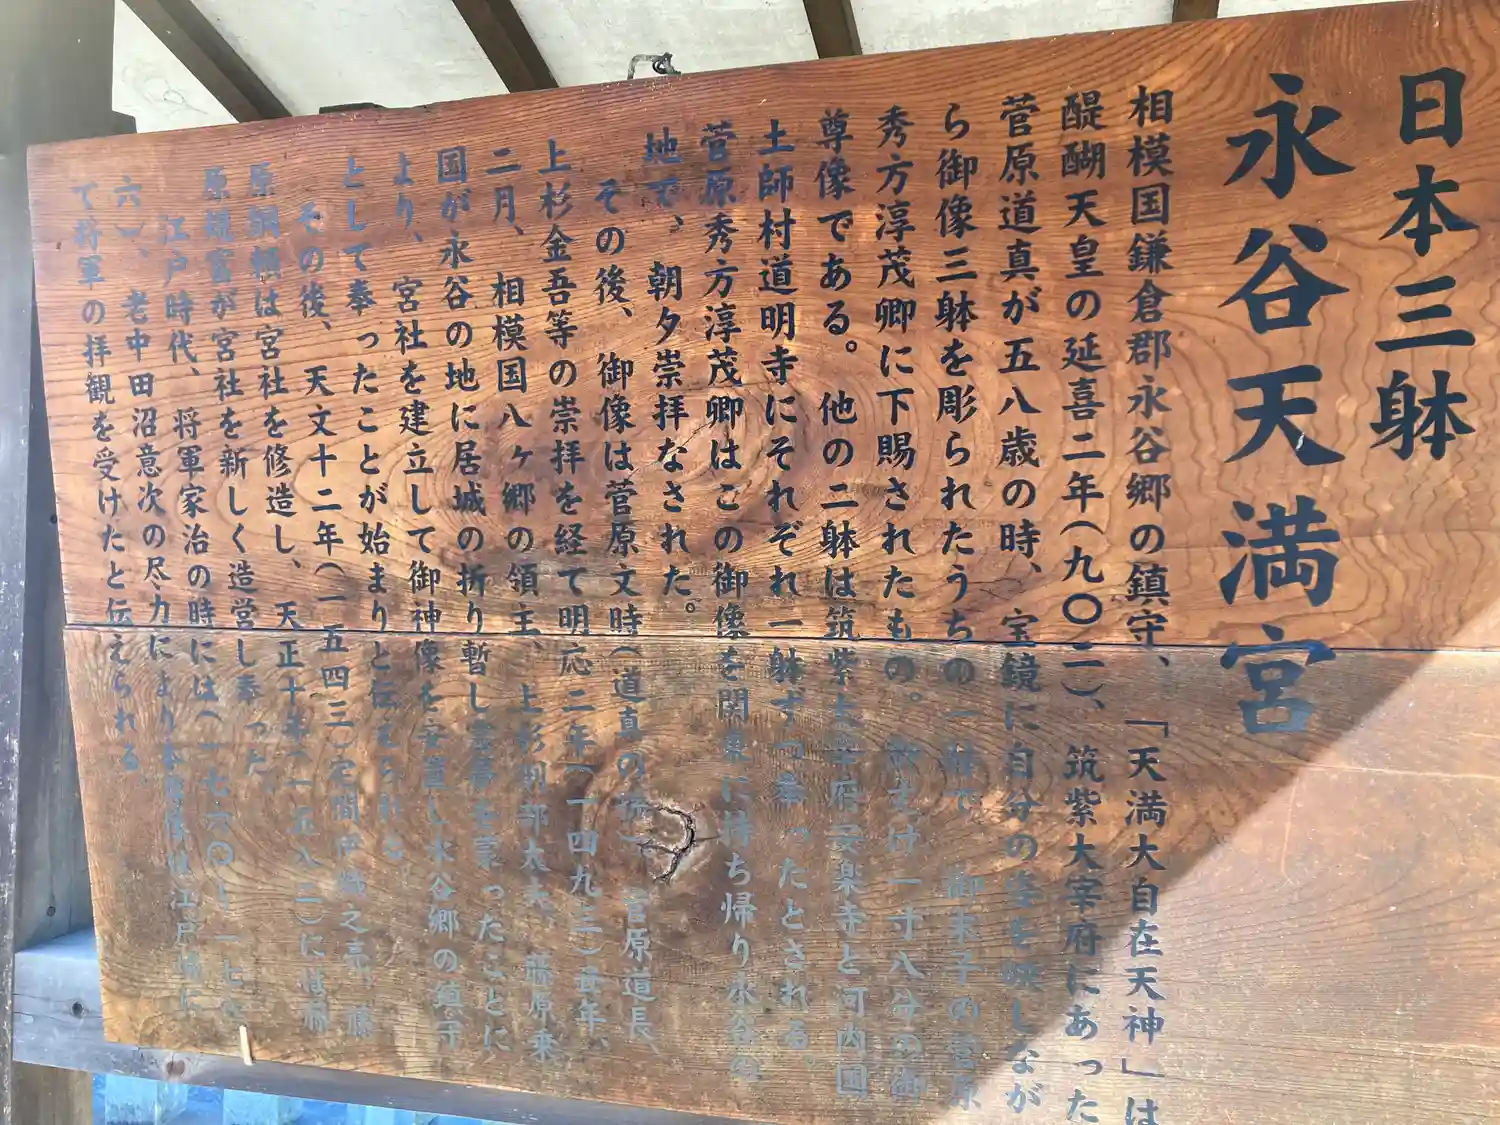 日本三躰
永谷天満宮
相模国鎌倉郡永谷郷の鎮守、「天満大自在天神」は
醍醐天皇の延喜二年(九〇二)、筑紫大宰府にあった
菅原道真が五八歳の時、宝鏡に自分の姿を映しなが
ら御像三躰を彫られたうちの一躰で、御末子の菅原
秀方淳茂卿に下賜されたもの。たけ一寸八分の御
尊像である。他の二躰は筑紫太宰府安楽寺と河内国
土師村道明寺にそれぞれ一躰ずつ奉ったとされる。
菅原秀方淳茂卿はこの御像を関東に持ち帰り永谷の
地で、朝夕崇拝なされた。
その後、御像は菅原文時(道真の孫)、菅原道長、
上杉金吾等の崇拝を経て明応二年(一四九三)
二月、相模国八ヶ郷の領主、上杉刑部大夫、藤原乗
国が永谷の地に居城の折り暫し霊夢を蒙ったことに
より、宮社を建立して御神像を安置し永谷郷の鎮守
として奉ったことが始まりと伝えられる。
その後、天文十二年(一五四三)
原綱頼は宮社を修造し、天正十年(一五八二)には藤
原規富が宮社を新しく造営し奉った。
江戸時代、将軍家治の時には(一七六〇〜一七八
六)、老中田沼意次の尽力により江戸城に
て将軍の拝観を受けたと伝えられる。